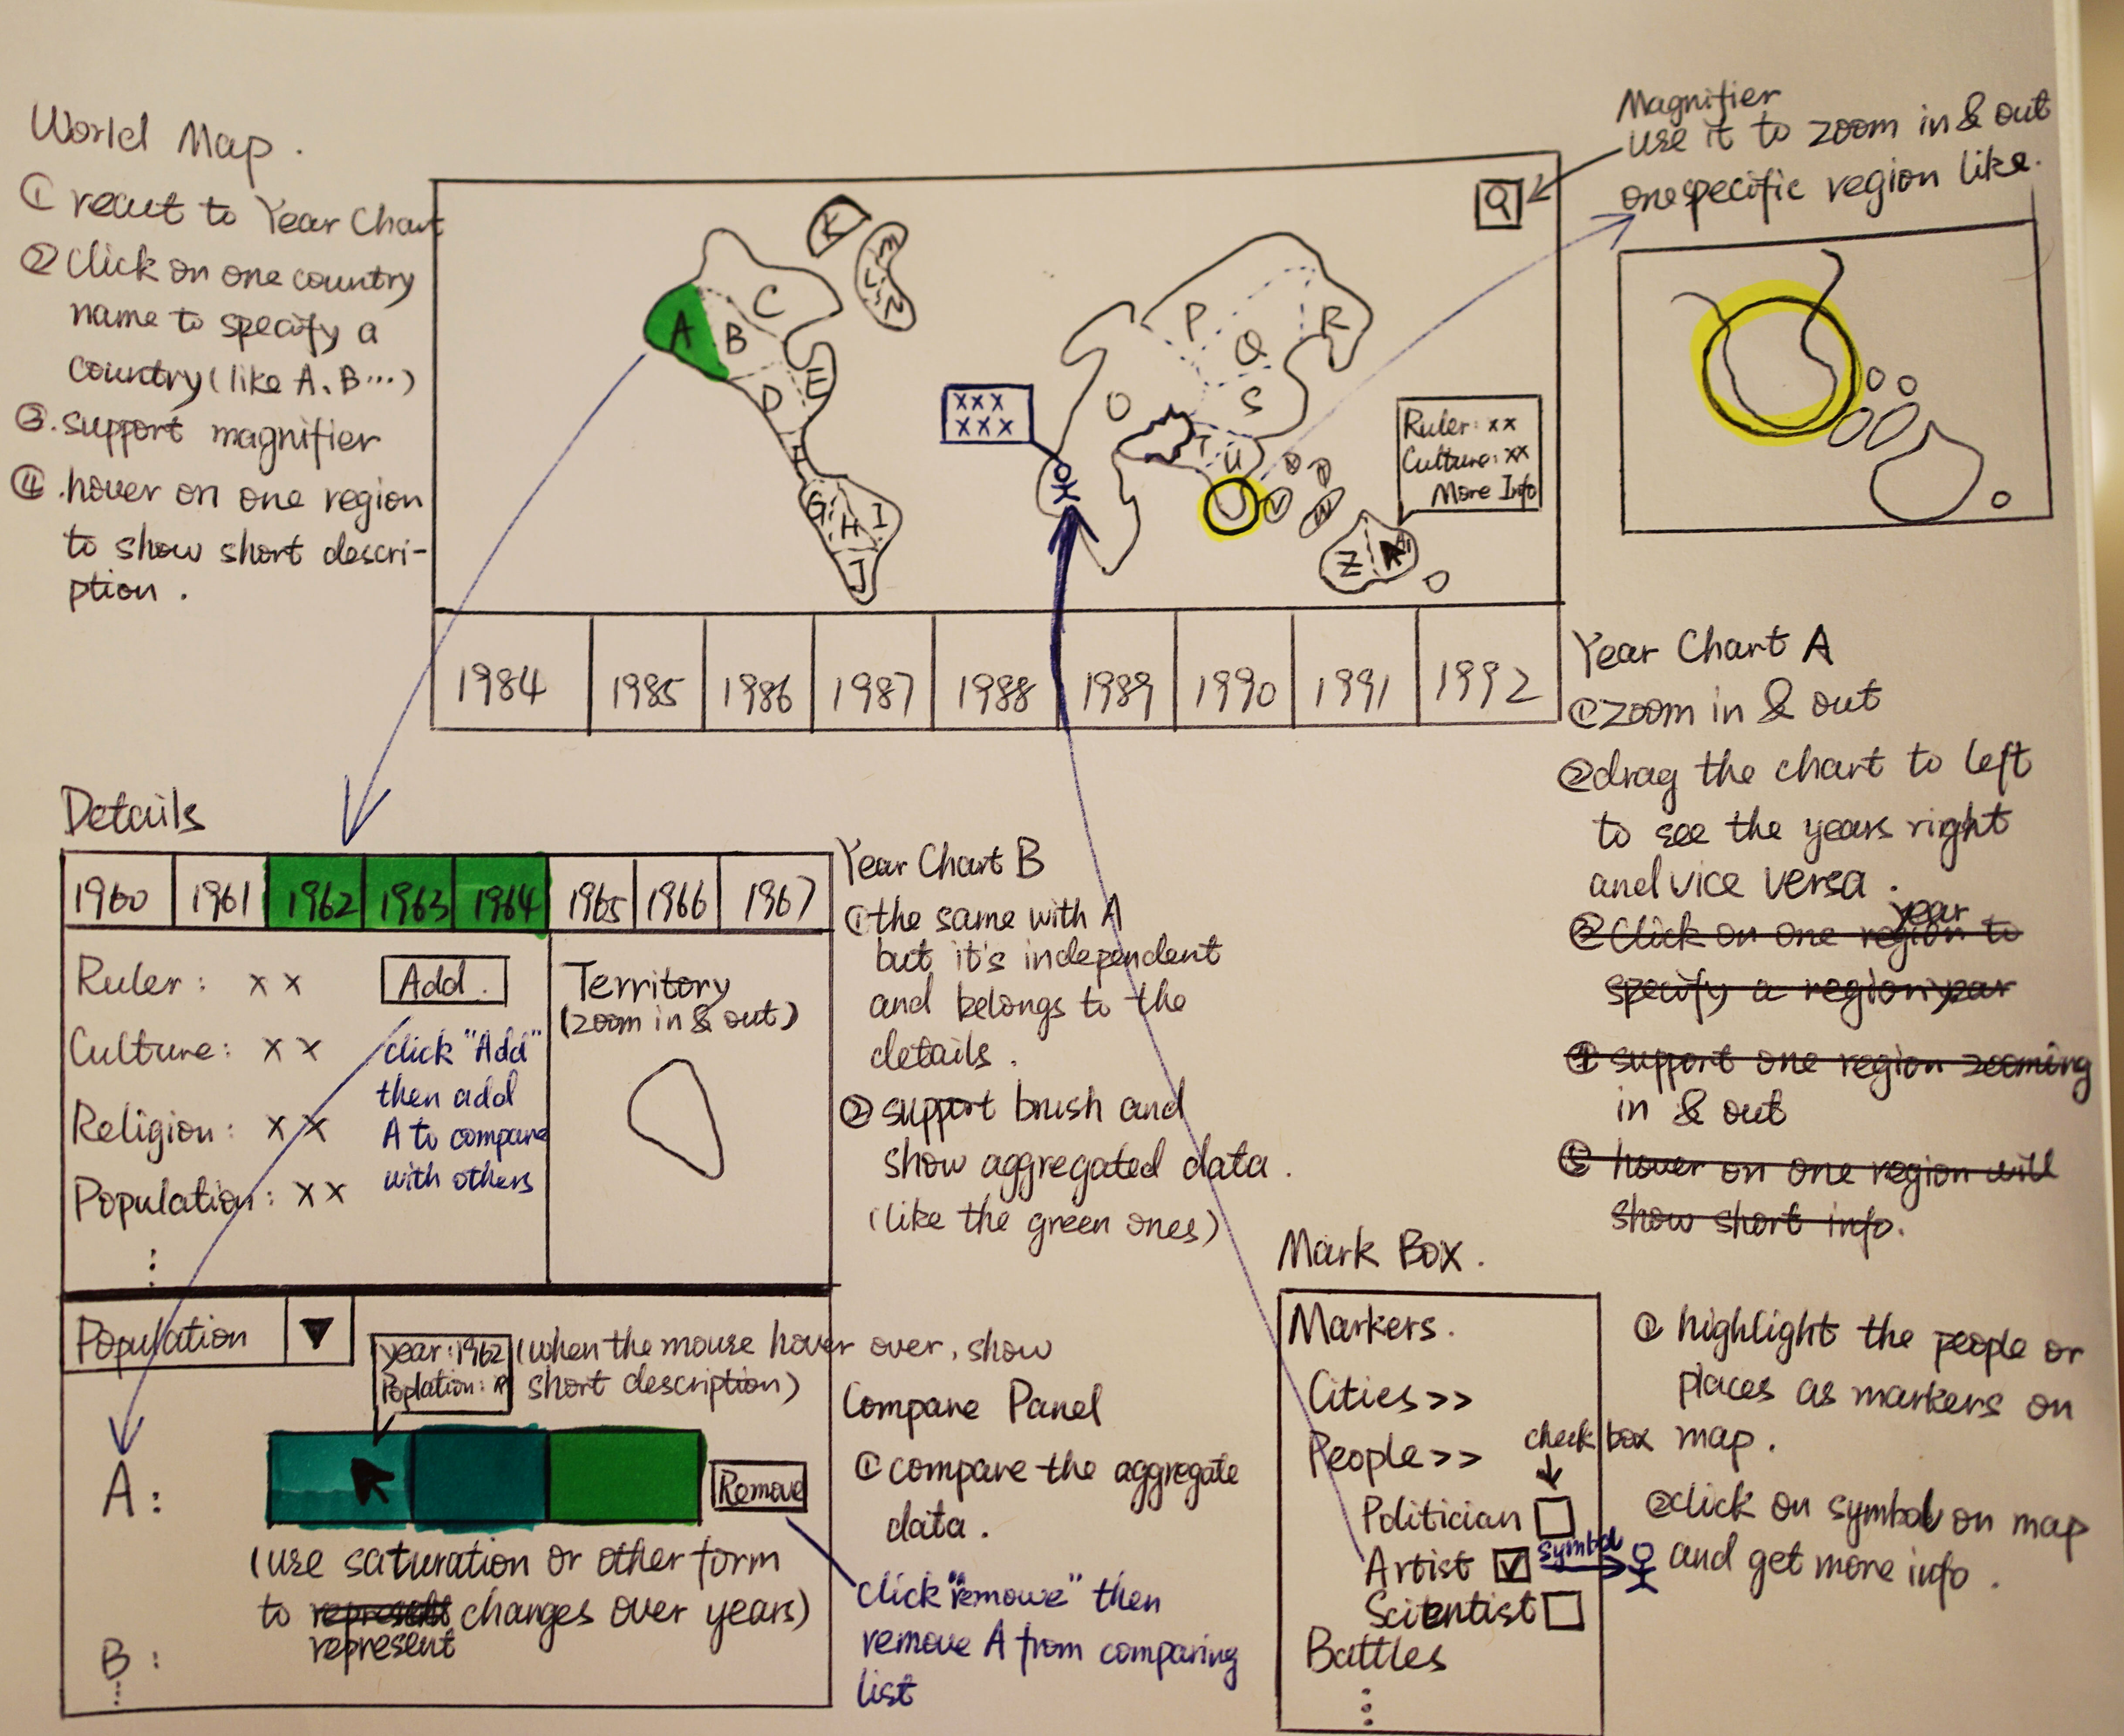 World Map.
① react to Year Chart
② Click on one country
name to specify a
country (like A、B...)
③. support magnifier
④ .hover on one region
to show short descri-
ption.
Magnifier
use it to zoom in & out
one specific region like.
K
M
L
N
C
A
B
E
D
G
H
I
J
P
Q
R
O
S
T
U
V
W
Z
xxx
xxx
Ruler: xx
Culture: xx
More Info
1984 1985 1986 1987 1988 1989 1990 1991 1992
Year Chart A
① zoom in & out
② drag the chart to left
to see the years right
and vice versa.
③ Click on one region year to
specify a region year
④ support one region zooming
in & out
⑤ hover on one region will
show short info.
Details
1960 1961 1962 1963 1964 1965 1966 1967
Ruler: xx
Add.
Culture: xx
Religion: xx
Population: xx
click "Add"
then add
A to compare
with others
Territory
(zoom in & out)
Year Chart B
① the same with A
but it's independent
and belongs to the
details.
② support brush and
show aggregated data.
(like the green ones)
Population ▼
year: 1962
Poplation:
(when the mouse hover over, show
short description)
A:
Remove
(use saturation or other form
to represent changes over years)
represent
B:
Compare Panel
① compare the aggregate
data.
click "remove" then
remove A from comparing
list
Mark Box.
Markers.
Cities>>
People>>
check box
Politician
Artist
symbol
Scientist
Battles
① highlight the people or
places as markers on
map.
② click on symbol on map
and get more info.